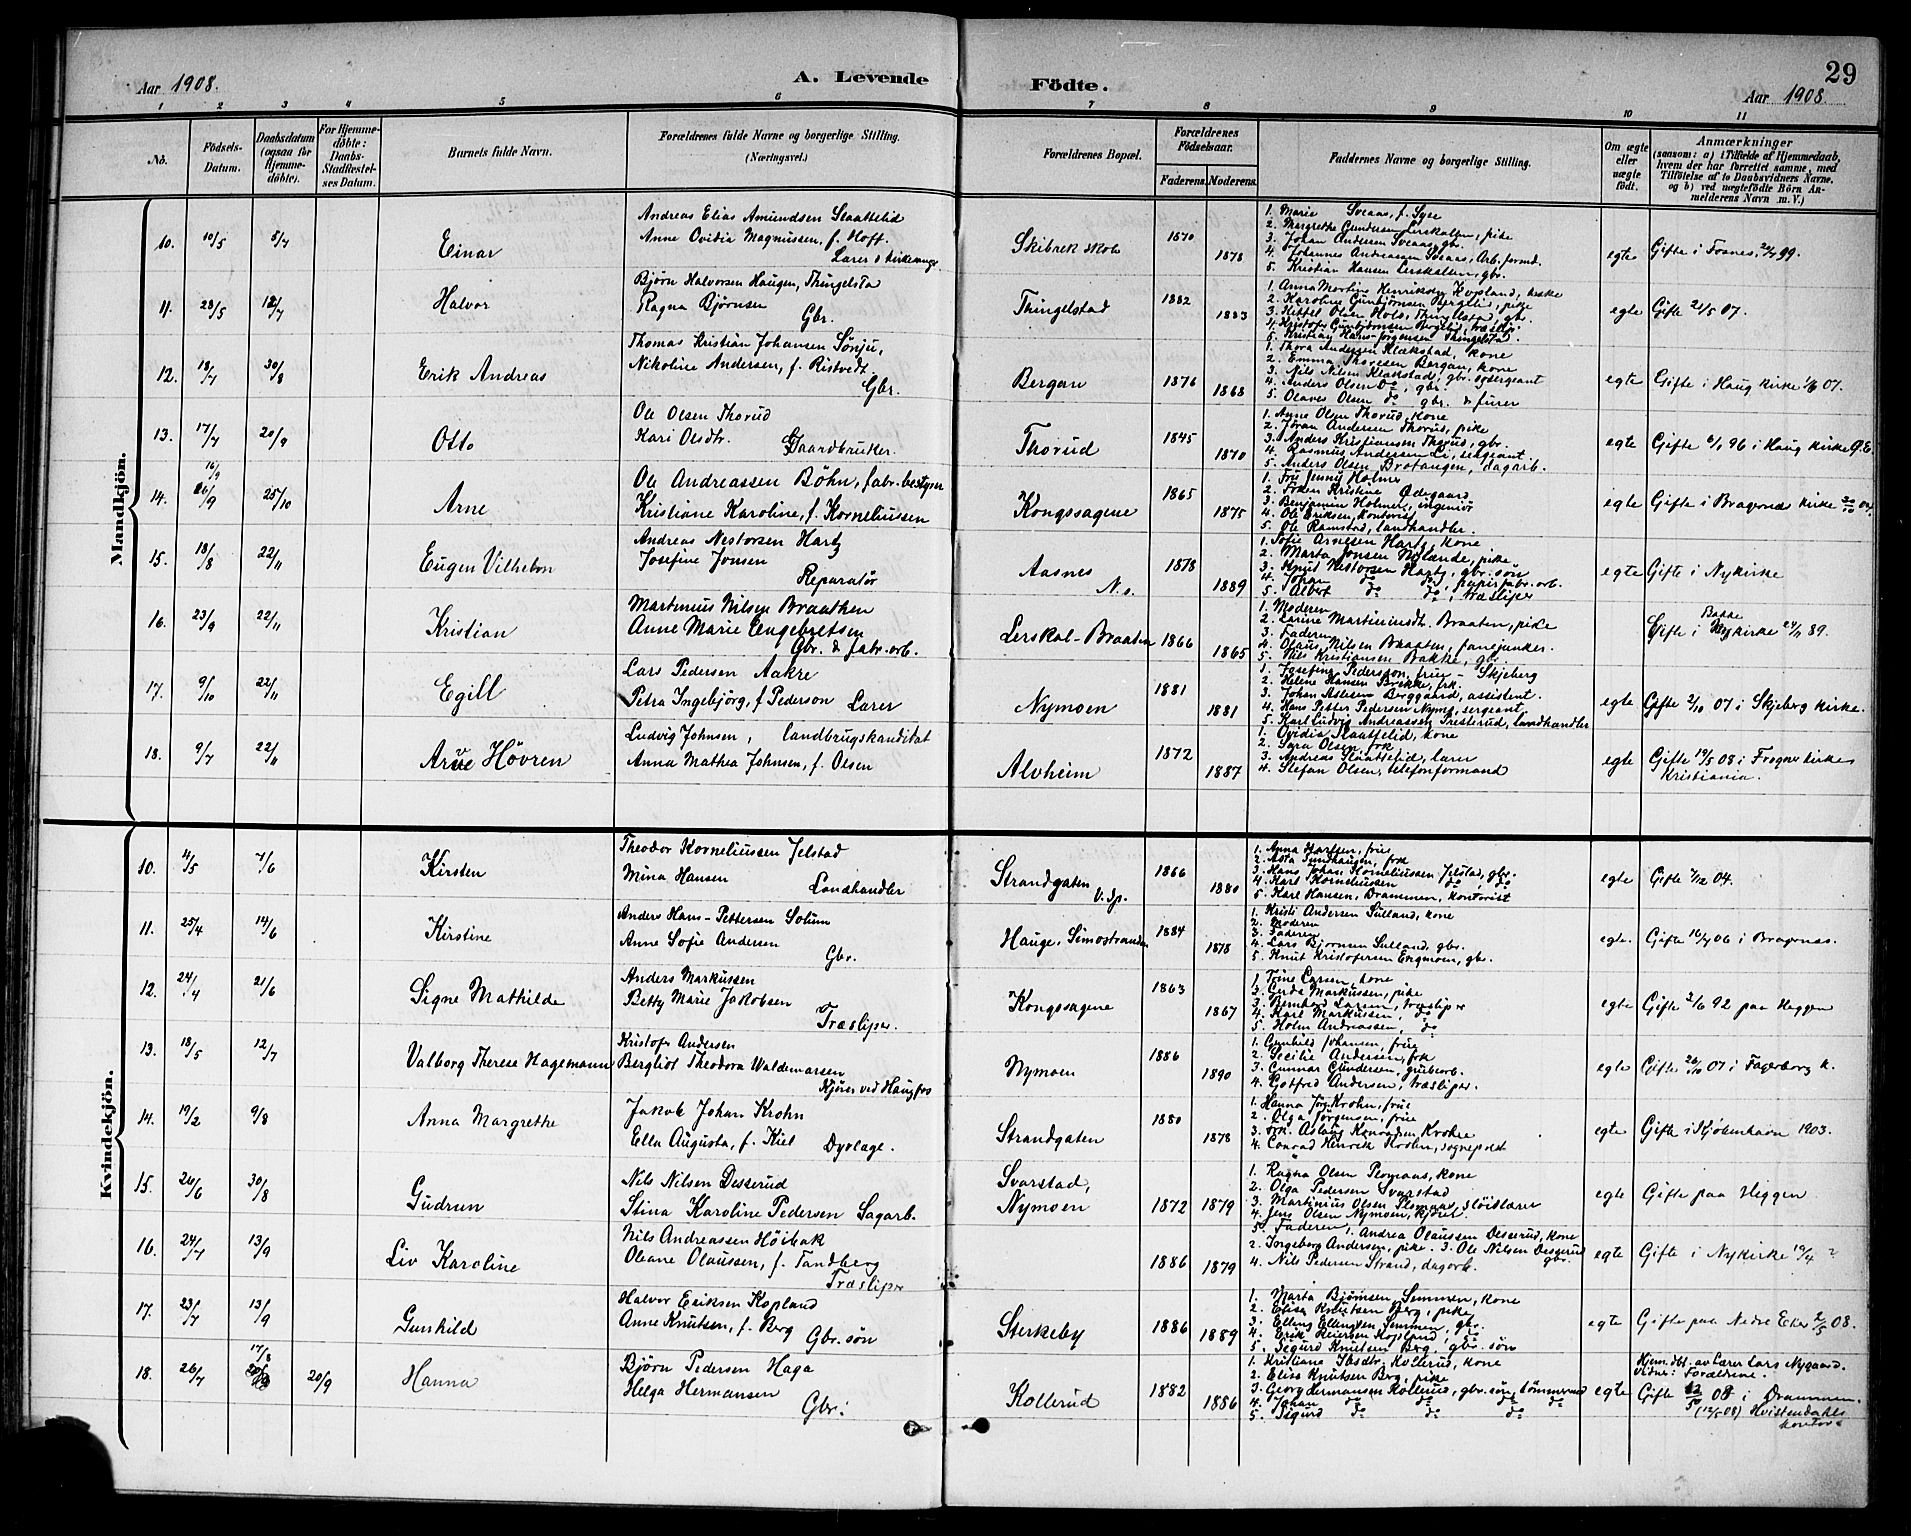 29
Aar 1908.
A. Levende
Fødte.
Aar 1908.
1 2 3 4 5 6 7 8 9 10 11
No.
Födsels-Datum.
Daabsdatum (ogsaa for Hjemme-döbte).
For Hjemme-döbte: Daabs-Stadfæstel-ses Datum.
Barnets fulde Navn.
Forældrenes fulde Navne og borgerlige Stilling. (Næringsvei.)
Forældrenes Bopæl.
Forældrenes Födselsaar.
Faderens. Moderens.
Faddernes Navne og borgerlige Stilling.
Om ægte eller uægte födt.
Anmærkninger
(saasom: a) i Tilfælde af Hjemmedaab, hvem der har forrettet samme, med Tilföielse af to Daabsvidners Navne, og b) ved uægtefödte Börn An-melderens Navn m. V.)
Mandkjön.
10. 10/5 5/7 Einar
Andreas Elias Amundsen Slaattelid
Anne Ovidia Magnussen, f. Hoff.
Lærer & kirkesanger
Skibrek skole 1870 1878
1. Marie Sveaas, f. Syse
2. Margrethe Gundersen Lerskallen, pike
3. Johan Andersen Sveaas, gbr.
4. Johannes Andreassen Sveaas, Arb. formd.
5. Kristian Hansen Lerskallen, gbr.
egte Gifte i Fosnes, 99.
11. 28/5 12/7 Halvor
Bjørn Halvorsen Haugen, Thingelsta
Ragna Bjørnsen
Gbr.
Thingelstad 1882 1883
1. Anna Martine Henriksen Kopland,
2. Karoline Gunbjørnsen Berglid, pike
3. Kittel Olsen Hole, Thingelstad, gbr.
4. Kristofer Gunbjørnsen Berglid, træslip.
5. Kristian Hans-Jørgensen Thingelsta.
egte Gifte 21/5 07.
12. 18/7 30/8 Erik Andreas
Thomas Kristian Johansen Sønju,
Nikoline Andersen, f. Ristvedt.
Gbr.
Bergan 1876 1868
1. Thora Andersen Klækstad, kone
2. Emma Thoresen Bergan, kone
3. Nils Nilsen Klækstad, gbr. & sergeant
4. Anders Olsen Do, gbr.
5. Olaves Olsen do gbr. & furer
egte Gifte i Haug kirke 07.
13. 17/7 20/9 Otto
Ole Olsen Thorud
Kari Olsdtr.
Gaardbruker.
Thorud 1845 1870
1. Anne Olsen Thorud, kone
2. Jøran Andersen Thorud, pike
3. Anders Kristiansen Thorud, gbr.
4. Rasmus Andersen Li, sergeant
5. Anders Olsen Brotangen, dagarb.
egte Gifte 6/1 96 i Haug kirke Ø.E.
14. 16/9 25/10 Arne
Ole Andreassen Böhn, fabr. bestyrer
Kristiane Karoline, f. Korneliussen
Kongssagene 1865 1875
1. Fru Jenny Holmer
2. Frøken Kristine Ødegaard
3. Benjamin Holmer, ingeniør
4. Ole Eriksen, kontorist
5. Ole Ramstad, landhandler.
egte Gifte i Bragernes kirke 04.
15. 18/8 22/11 Eugen Vilhelm
Andreas Nestorsen Hartz
Josefine Jonsen
Reparatør
Aasnes N.s. 1878 1889
1. Sofie Arnesen Hartz, kone
2. Marta Jonsen Nylande, pike
3. Knut Nestorsen Hartz, gbr. søn
4. Johan do do, papirfabr. arb.
5. Albert do do, træsliper
egte Gifte i Nykirke
16. 23/9 22/11 Kristian
Martinius Nilsen Braathen
Anne Marie Engebretsen
Gbr. & fabr. arb.
Lerskal-Braaten 1866 1865
1. Moderen
2. Larine Martiniusdt. Braaten, pike
3. Faderen
4. Olaus Nilsen Braaten, fanejunker.
5. Nils Kristiansen Bakke, gbr.
Gifte i Bakke kirke 24/11 89.
17. 9/10 22/11 Egill
Lars Pedersen Aakre
Petra Ingebjörg, f. Pederson Lærer
Nymoen 1881 1881
1. Josefine Pedersson, frue - Skjeberg
2. Helene Hansen Brekke, frk.
3. Johan Aslesen Borggaard, assistent.
4. Hans Petter Pedersen Nymo, sergeant.
5. Karl Ludvig Andreassen Presterud, landhandler
egte Gifte 2/10 07 i Skjeberg kirke.
18. 9/7 22/11 Arve Hövren
Ludvig Johnsen, landbrugskandidat
Anna Mathea Johnsen, f. Olsen
Alvheim 1872 1887
1. Ovidia Slaattelid, kone
2. Sara Olsen, frk
3. Andreas Slaattelid, lærer
4. Stefan Olsen, telefonformand
egte Gifte 19/5 08 i Frogner kirke Kristiania.
Kvindekjön.
10. 4/5 7/6 Kirsten
Theodor Korneliussen Jelstad
Mina Hansen
Landhandler
Strandgaten V.Sp. 1866 1880
1. Anna Hartsen, frue
2. Asta Sundhaugen, frk
3. Hans Johan Korneliussen Jelstad, gbr.
4. Karl Korneliussen do, do
5. Karl Hansen, Drammen, kontorist
egte Gifte 7/12 04.
11. 25/4 14/6 Kirstine
Anders Hans-Pettersen Solum
Anne Sofie Andersen
Gbr.
Hauge, Simostranden 1884 1878
1. Kristi Andersen Sulland, kone
2. Moderen
3. Faderen
4. Lars Bjørnsen Sulland, gbr.
5. Knut Kristofersen Engmoen, gbr.
egte. Gifte 16/4 06 i Bragernes.
12. 24/4 21/6 Signe Mathilde
Anders Markussen
Betty Marie Jakobsen
Træsliper.
Kongssagene 1863 1867
1. Tine Larsen, kone
2. Gerda Markussen, pike
3. Bernhard Larsen, træsliper
4. Karl Markussen, do
5. Holm Andreassen, do
egte Gifte 2/6 92 paa Heggen
13. 18/5 12/7 Valborg Therese Hagemann
Kristofer Andersen
Bergliot Theodora Waldemarsen
Kjører ved Haugfos
Nymoen 1886 1890
1. Gunhild Johansen, frue
2. Cecilie Andersen, frk
3. Gunnar Gundersen, grubearb.
4. Gotfred Andersen, træsliper.
egte Gifte 26/10 07 i Fagerborg k.
14. 19/2 9/8 Anna Margrethe
Jakob Johan Krohn
Ella Augusta, f. Kiel Dyrlæge.
Strandgaten 1880 1878
1. Hanna Jørg. Krohn, frue
2. Olga Jørgensen, frue
3. frk. Aslaug Konradsen Krohn
4. Conrad Henrik Krohn, sogneprest
egte Gifte i Kjöbenhavn 1903.
15. 26/6 30/8 Gudrun
Nils Nilsen Desserud
Stina Karoline Pedersen Sagarb.
Svarstad, Nymoen 1872 1879
1. Ragna Olsen Plomaas, kone
2. Olga Pedersen Svarstad
3. Martinius Olsen Plomaas, sløidlærer
4. Jens Olsen Nymoen, kjører.
5. Faderen
egte Gifte paa Heggen
16. 24/7 13/9 Liv Karoline
Nils Andreassen Höibak
Oleane Olaussen, f. Tandberg
Træsliper
1886 1879
1. Andrea Olaussen Desserud, kone
2. Ingeborg Andersen, pike. 3. Ole Nilsen Desserud gbr.
4. Nils Pedersen Strand, dagarb.
egte Gifte i Nykirke 19/4 ?
17. 23/7 13/9 Gunhild
Halvor Eriksen Kopland
Anne Knutsen, f. Berg Gbr. søn
Sterkeby 1886 1889
1. Marta Bjørnsen Semmen, kone
2. Elise Knutsen Berg, pike
3. Elling Ellingsen Semmen, gbr.
4. Erik Reiersen Kopland, do
5. Sigurd Knutsen Berg, gbr. søn
egte Gifte paa Nedre Eker 2/5 08.
18. 26/7 17/8 20/9 Hanna
Bjørn Pedersen Haga
Helga Hermansen
Gbr.
Kollerud 1882 1886
1. Kristiane Ibsdtr. Kollerud, kone
2. Elise Knutsen Berg, pike
3. Georg Hermansen Kollerud, gbr. søn, tømmermd
4. Johan do do do do
5. Sigurd do do do
egte
Hjem. dbt. av Lærer Lars Nygaard.
Vidner: Forældrene.
Gifte 12/5 08 i Drammen.
(12/5 08) Hvistendahls kontor